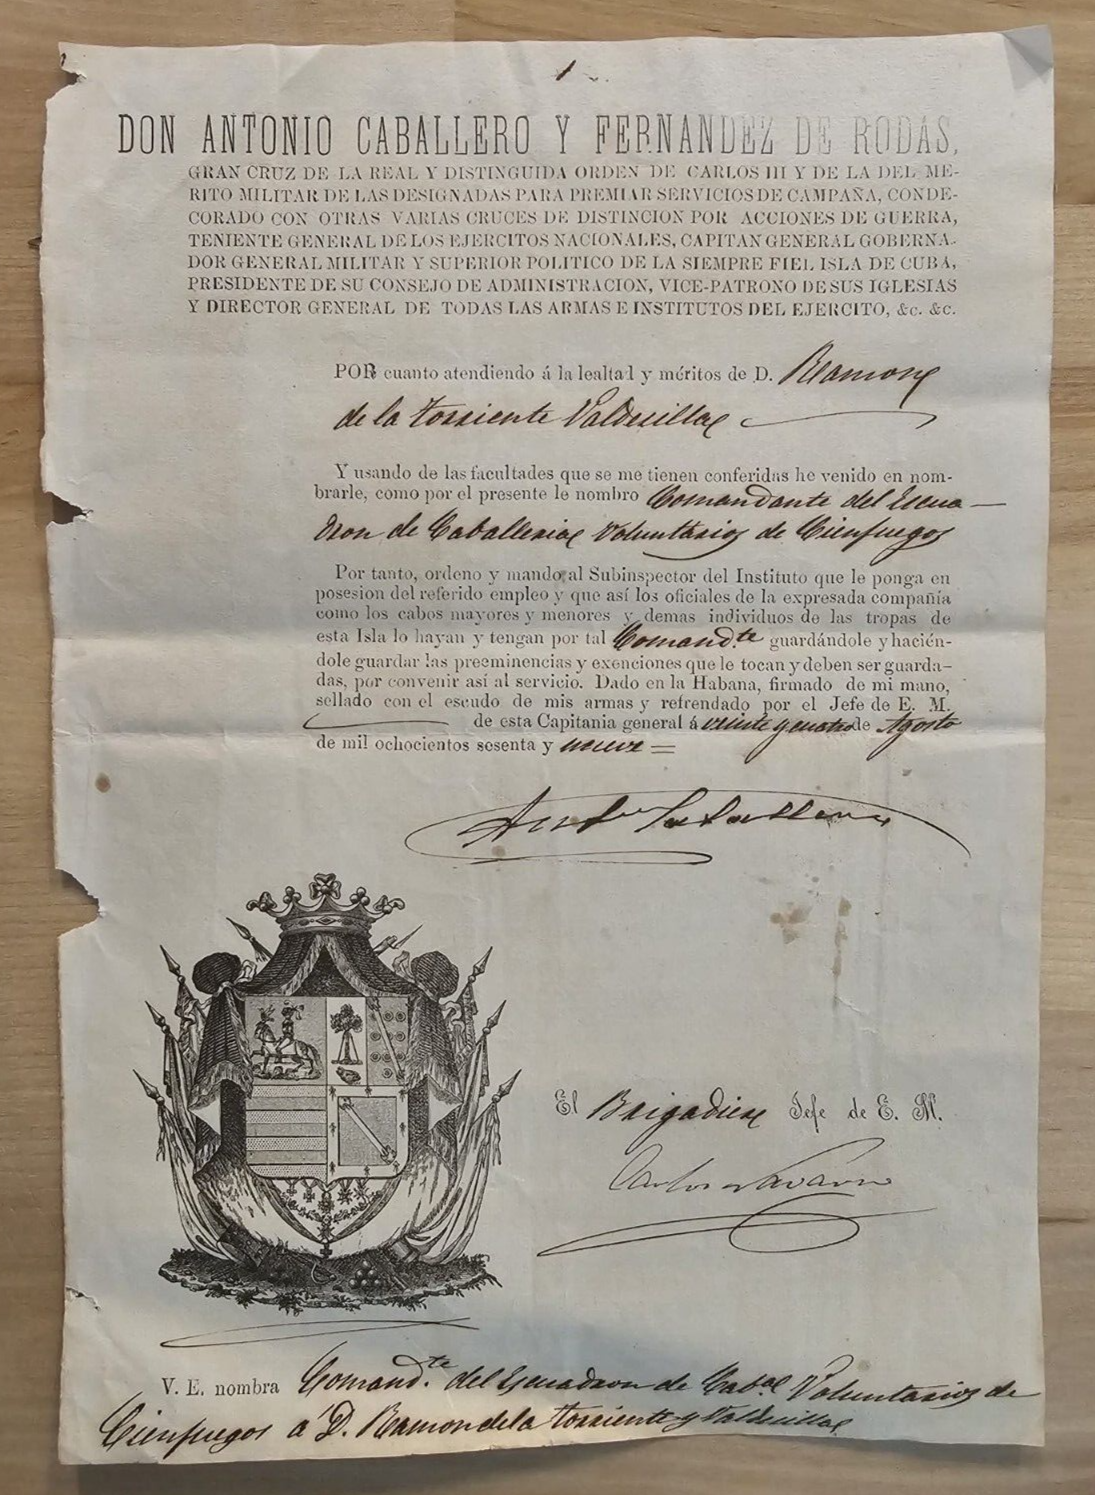 1
DON ANTONIO CABALLERO Y FERNANDEZ DE RODAS,
GRAN CRUZ DE LA REAL Y DISTINGUIDA ORDEN DE CARLOS III Y DE LA DEL ME-
RITO MILITAR DE LAS DESIGNADAS PARA PREMIAR SERVICIOS DE CAMPAÑA, CONDE-
CORADO CON OTRAS VARIAS CRUCES DE DISTINCION POR ACCIONES DE GUERRA,
TENIENTE GENERAL DE LOS EJERCITOS NACIONALES, CAPITAN GENERAL GOBERNA-
DOR GENERAL MILITAR Y SUPERIOR POLITICO DE LA SIEMPRE FIEL ISLA DE CUBA,
PRESIDENTE DE SU CONSEJO DE ADMINISTRACION, VICE-PATRONO DE SUS IGLESIAS
Y DIRECTOR GENERAL DE TODAS LAS ARMAS E INSTITUTOS DEL EJERCITO, &c. &c.
POR cuanto atendiendo á la lealtad y méritos de D. Ramon
de la Torriente Valdesillas
Y usando de las facultades que se me tienen conferidas he venido en nom-
brarle, como por el presente le nombro Comandante del Escua-
dron de Caballeria Voluntarios de Cienfuegos
Por tanto, ordeno y mando al Subinspector del Instituto que le ponga en
posesion del referido empleo y que así los oficiales de la expresada compañía
como los cabos mayores y menores y demas individuos de las tropas de
esta Isla lo hayan y tengan por tal Comand.te guardándole y hacién-
dole guardar las preeminencias y exenciones que le tocan y deben ser guarda-
das, por convenir así al servicio. Dado en la Habana, firmado de mi mano,
sellado con el escudo de mis armas y refrendado por el Jefe de E. M.
de esta Capitania general á veinte y cuatro de Agosto
de mil ochocientos sesenta y nueve =
Ant.º Caballero
El Brigadier Jefe de E. M.
Carlos Navarro
V. E. nombra Comand.te del Escuadron de Cab.al Voluntarios de
Cienfuegos á D. Ramon de la Torriente y Valdesillas